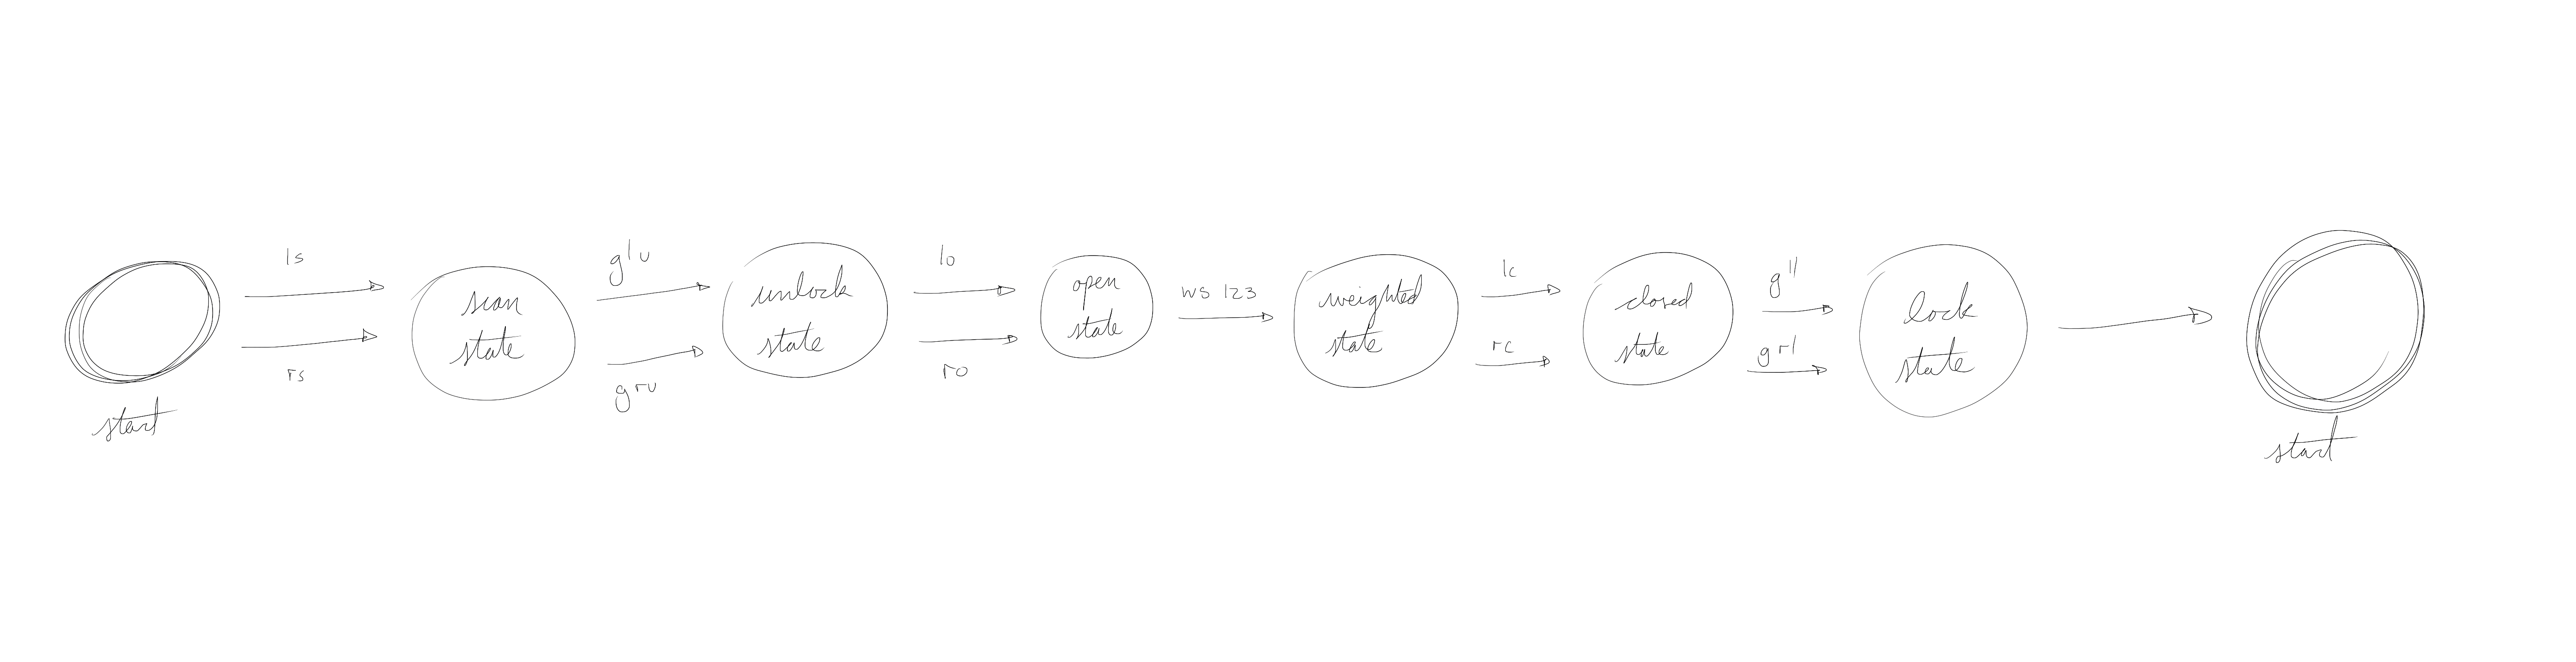 start
ls
rs
scan
state
glu
gru
unlock
state
lo
ro
open
state
ws 123
weighted
state
lc
rc
closed
state
gll
grl
lock
state
start